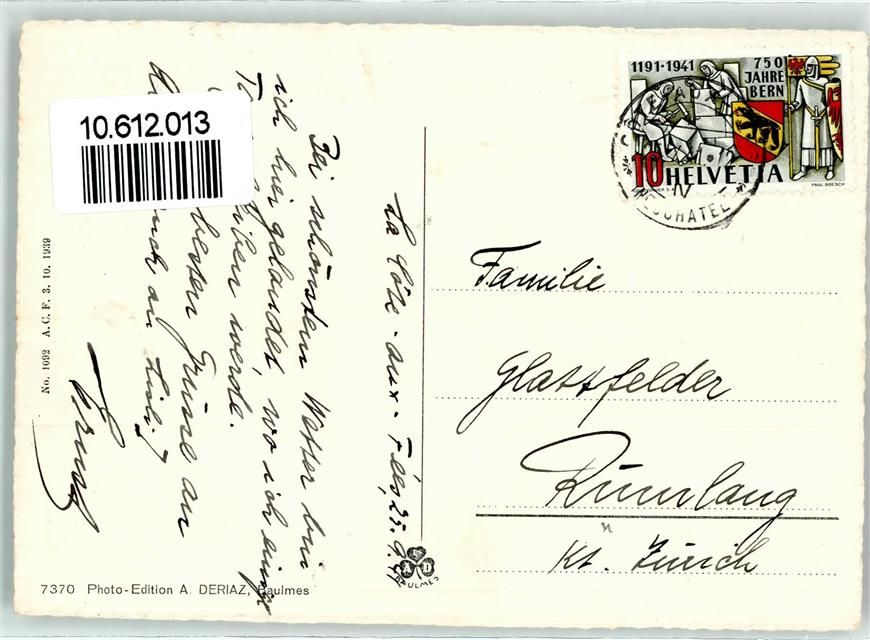 10.612.013
La Côte-aux-Fées, 25.9.41
Bei schönstem Wetter bin
ich hier gelandet, wo ich einige
Ta bleiben werde.
besten Grüsse an
auch an Lisli.
Ernst
No. 1092 A. C. F. 3. 10. 1939
7370 Photo-Edition A. DERIAZ, Baulmes
A D
BAULMES
1191-1941
750
JAHRE
BERN
10 HELVETIA
PAUL BOESCH
IV
NEUCHATEL
Familie
Glattfelder
Rümlang
n
Kt. Zürich